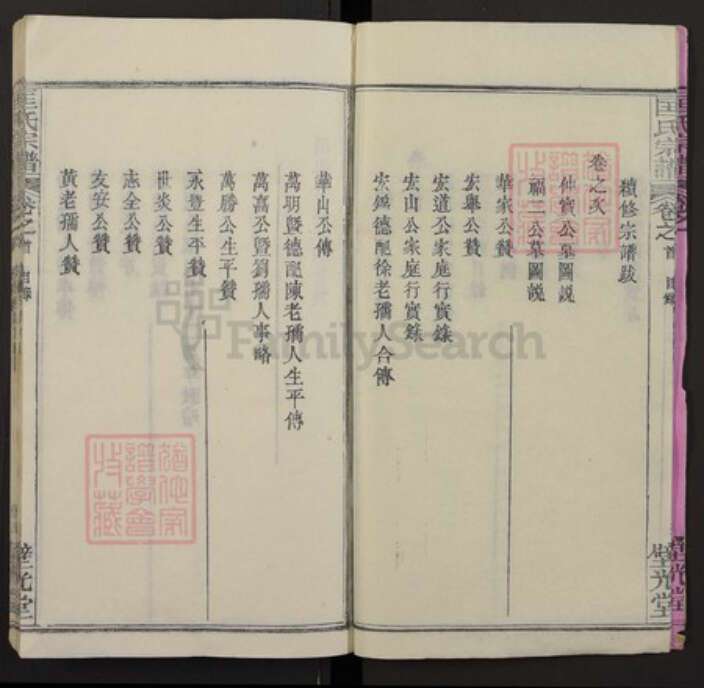 匡氏宗譜
卷之首
目錄
壁光堂
續修宗譜跋
卷之次
仲實公墓圖説
福二公墓圖説
華家公贊
宏舉公贊
宏道公家庭行實錄
宏山公家庭行實錄
宏鑅德配徐老孺人合傳
華山公傳
萬明暨德配陳老孺人生平傳
萬高公暨劉孺人事略
萬勝公生平贊
永豐生平贊
世炎公贊
志全公贊
友安公贊
黃老孺人贊
匡氏宗譜
卷之首
目錄
壁光堂
FamilySearch